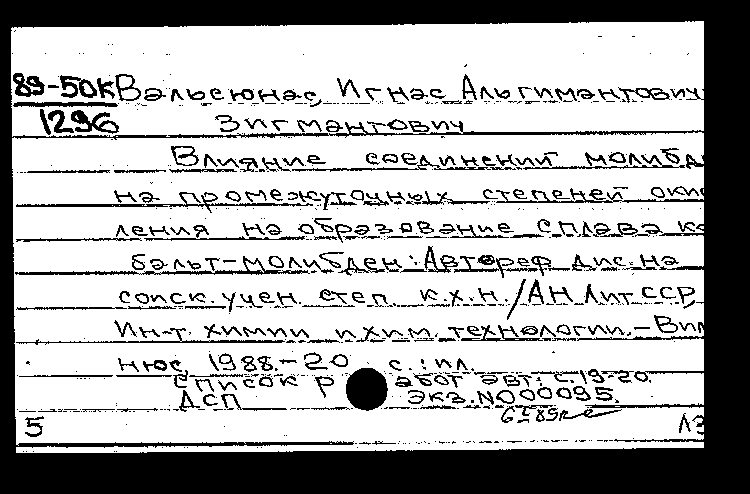 89-50к Вальсюнас, Игнас Альгимантович
1296 Зигмантович
Влияние соединений молибд
на промежуточных степеней оки
ления на образование сплава ко
бальт-молибден: Автореф дис. на
соиск. учен. степ. к.х.н. / АН ЛитССР,
Ин-т. химии и хим. технологии. - Вил
нюс, 1988. - 20 с. : ил.
Список работ авт.: с. 19-20.
ДСП Экз. N000095.
5 ЛЗ